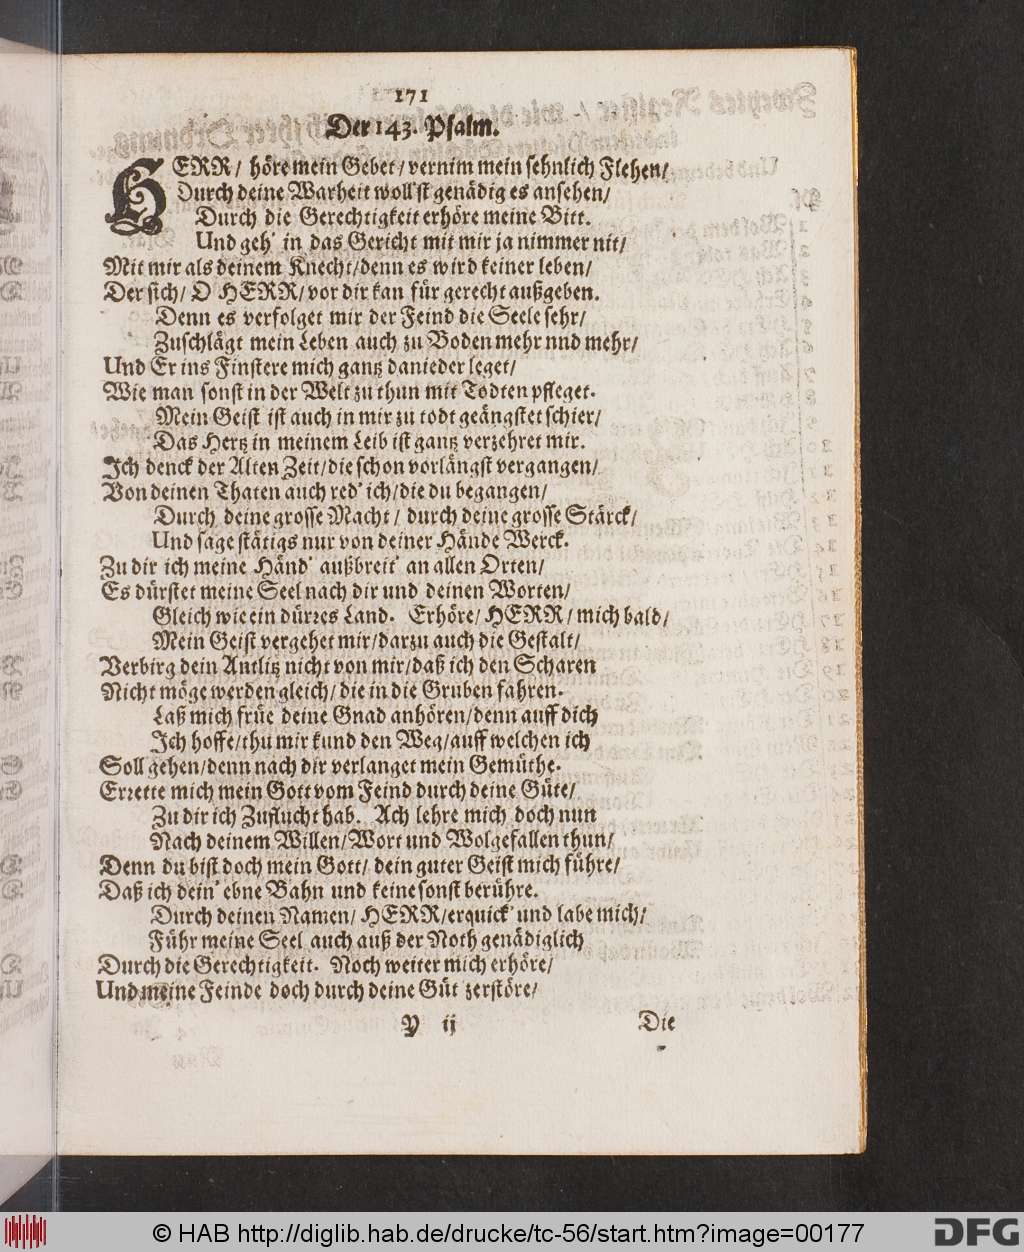 171
Der 143. Psalm.
HERR/ höre mein Gebet/ vernim mein sehnlich Flehen/
Durch deine Warheit wollst genädig es ansehen/
Durch die Gerechtigkeit erhöre meine Bitt.
Und geh' in das Gericht mit mir ja nimmer nit/
Mit mir als deinem Knecht/ denn es wird keiner leben/
Der sich/ O HERR/ vor dir kan für gerecht außgeben.
Denn es verfolget mir der Feind die Seele sehr/
Zuschlägt mein Leben auch zu Boden mehr nnd mehr/
Und Er ins Finstere mich gantz danieder leget/
Wie man sonst in der Welt zu thun mit Todten pfleget.
Mein Geist ist auch in mir zu todt geängstet schier/
Das Hertz in meinem Leib ist gantz verzehret mir.
Ich denck der Alten Zeit/ die schon vorlängst vergangen/
Von deinen Thaten auch red' ich/ die du begangen/
Durch deine grosse Macht/ durch deine grosse Stärck/
Und sage stätigs nur von deiner Hände Werck.
Zu dir ich meine Händ' außbreit' an allen Orten/
Es dürstet meine Seel nach dir und deinen Worten/
Gleich wie ein dürres Land. Erhöre/ HERR/ mich bald/
Mein Geist vergehet mir/ darzu auch die Gestalt/
Verbirg dein Antlitz nicht von mir/ daß ich den Scharen
Nicht möge werden gleich/ die in die Gruben fahren.
Laß mich früe deine Gnad anhören/ denn auff dich
Ich hoffe/ thu mir kund den Weg/ auff welchen ich
Soll gehen/ denn nach dir verlanget mein Gemüthe.
Errette mich mein Gott vom Feind durch deine Güte/
Zu dir ich Zuflucht hab. Ach lehre mich doch nun
Nach deinem Willen/ Wort und Wolgefallen thun/
Denn du bist doch mein Gott/ dein guter Geist mich führe/
Daß ich dein' ebne Bahn und keine sonst berühre.
Durch deinen Namen/ HERR/ erquick' und labe mich/
Führ meine Seel auch auß der Noth genädiglich
Durch die Gerechtigkeit. Noch weiter mich erhöre/
Und meine Feinde doch durch deine Güt zerstöre/
Y ij Die
© HAB http://diglib.hab.de/drucke/tc-56/start.htm?image=00177
DFG